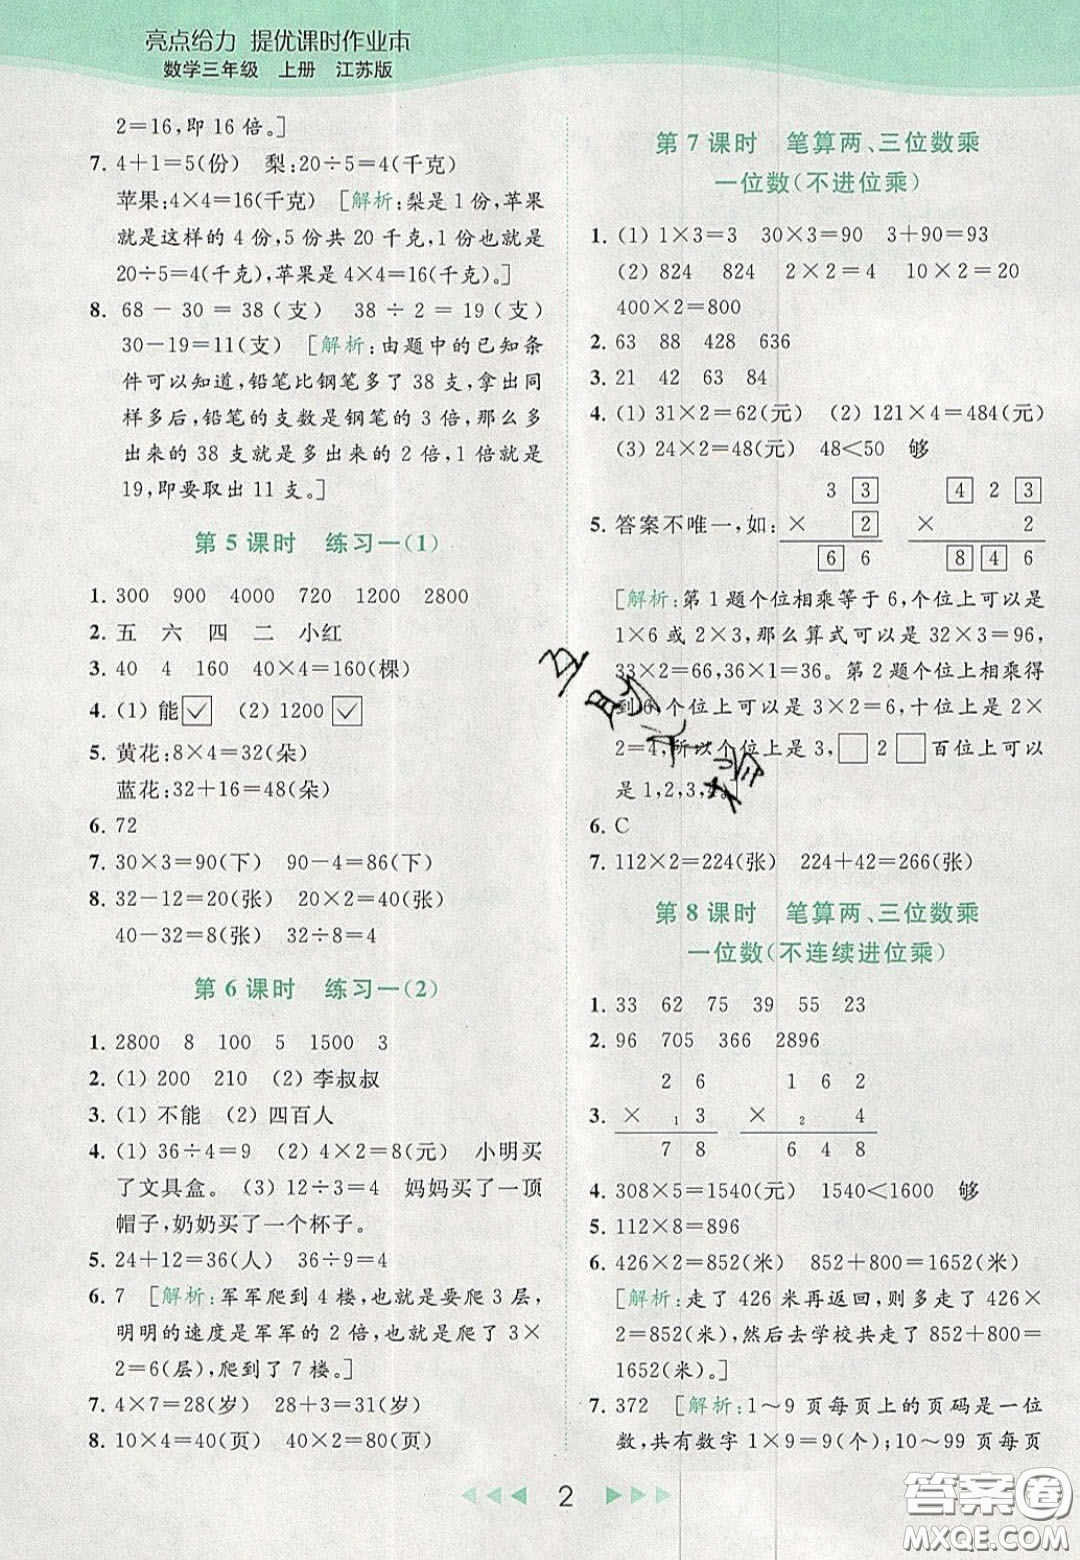 亮点给力 提优课时作业本
数学三年级 上册 江苏版
2=16,即 16 倍。]
7. 4+1=5(份) 梨:20÷5=4(千克)
苹果:4×4=16(千克) [解析:梨是 1 份,苹果
就是这样的 4 份,5 份共 20 千克,1 份也就是
20÷5=4(千克),苹果是 4×4=16(千克)。]
8. 68-30=38(支) 38÷2=19(支)
30-19=11(支) [解析:由题中的已知条
件可以知道,铅笔比钢笔多了 38 支,拿出同
样多后,铅笔的支数是钢笔的 3 倍,那么多
出来的 38 支就是多出来的 2 倍,1 倍就是
19,即要取出 11 支。]
第 5 课时 练习一(1)
1. 300 900 4000 720 1200 2800
2. 五 六 四 二 小红
3. 40 4 160 40×4=160(棵)
4. (1) 能 ✓ (2) 1200 ✓
5. 黄花:8×4=32(朵)
蓝花:32+16=48(朵)
6. 72
7. 30×3=90(下) 90-4=86(下)
8. 32-12=20(张) 20×2=40(张)
40-32=8(张) 32÷8=4
第 6 课时 练习一(2)
1. 2800 8 100 5 1500 3
2. (1) 200 210 (2) 李叔叔
3. (1) 不能 (2) 四百人
4. (1) 36÷4=9 (2) 4×2=8(元) 小明买
了文具盒。(3) 12÷3=4 妈妈买了一顶
帽子,奶奶买了一个杯子。
5. 24+12=36(人) 36÷9=4
6. 7 [解析:军军爬到 4 楼,也就是要爬 3 层,
明明的速度是军军的 2 倍,也就是爬了 3×
2=6(层),爬到了 7 楼。]
7. 4×7=28(岁) 28+3=31(岁)
8. 10×4=40(页) 40×2=80(页)
第 7 课时 笔算两、三位数乘
一位数(不进位乘)
1. (1) 1×3=3 30×3=90 3+90=93
(2) 824 824 2×2=4 10×2=20
400×2=800
2. 63 88 428 636
3. 21 42 63 84
4. (1) 31×2=62(元) (2) 121×4=484(元)
(3) 24×2=48(元) 48<50 够
3 3 4 2 3
5. 答案不唯一,如: × 2 × 2
6 6 8 4 6
[解析:第 1 题个位相乘等于 6,个位上可以是
1×6 或 2×3,那么算式可以是 32×3=96,
33×2=66,36×1=36。第 2 题个位上相乘得
到 6,个位上可以是 3×2=6,十位上是 2×
2=4,所以个位上是 3,□2□百位上可以
是 1,2,3,4。
6. C
7. 112×2=224(张) 224+42=266(张)
第 8 课时 笔算两、三位数乘
一位数(不连续进位乘)
1. 33 62 75 39 55 23
2. 96 705 366 2896
2 6 1 6 2
3. × 1 3 × 2 4
7 8 6 4 8
4. 308×5=1540(元) 1540<1600 够
5. 112×8=896
6. 426×2=852(米) 852+800=1652(米)
[解析:走了 426 米再返回,则多走了 426×
2=852(米),然后去学校共走了 852+800=
1652(米)。]
7. 372 [解析:1～9 页每页上的页码是一位
数,共有数字 1×9=9(个);10～99 页每页
2
答案圈
MXQE.COM